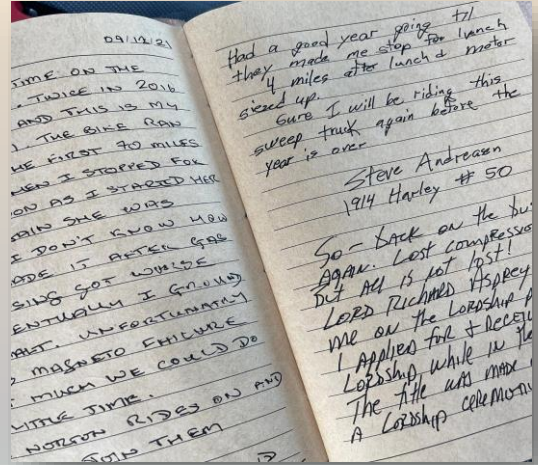 09/12/21
TIME ON THE
. TWICE IN 2016
AND THIS IS MY
. THE BIKE RAN
HE FIRST 70 MILES
HEN I STOPPED FOR
ON AS I STARTED HER
AIN SHE WAS
I DON'T KNOW HOW
ADE IT AFTER GAS
SING GOT WORSE
ENTUALLY I GROUND
ALT. UNFORTUNATELY
MAGNETO FAILURE
MUCH WE COULD DO
LITTLE TIME.
NORTON RIDES ON AND
JOIN THEM
Had a good year going till
they made me stop for lunch
4 miles after lunch & motor
siezed up.
Sure I will be riding this
sweep truck again before the
year is over
Steve Andreasen
1914 Harley # 50
So - back on the bu
AGAIN. Lost compressio
but All is not lost!
LORD RICHARD ASPREY
me on the LORDSHIP P
I APPLIED for & RECEIV
LORDSHIP while in the
The title WAS MADE
A LORDSHIP CEREMONI